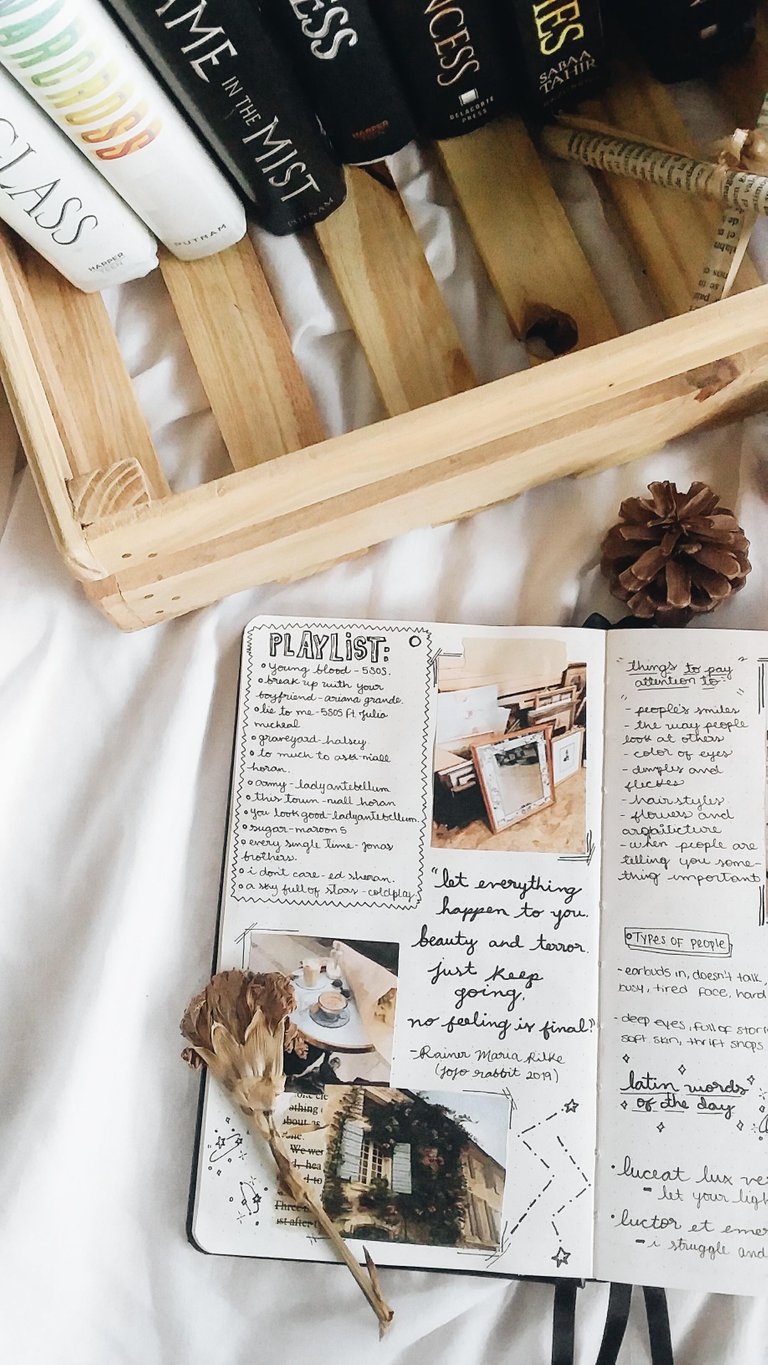 GLASS
HARPER
TEEN
WARCROSS
PUTNAM
AME IN THE MIST
PUTNAM
ESS
HARPER
TEEN
NCESS
DELACORTE
PRESS
IES
SABAA
TAHIR
PLAYLIST:
young blood - 5SOS.
break up with your
boyfriend - ariana grande.
lie to me - 5SOS ft Julia
micheal
graveyard - halsey.
to much to ask - niall
horan.
army - ladyantebellum
this town - niall horan
you look good - ladyantebellum.
sugar - maroon 5
every single time - jonas
brothers.
i dont care - ed sheran.
a sky full of stars - coldplay
"let everything
happen to you.
beauty and terror.
just keep
going.
no feeling is final."
- Rainer Maria Rilke
(jojo rabbit 2019)
athing
about as
We wer
I to
Three
ist after
"things to pay
attention to:"
- people's smiles
- the way people
look at others
- color of eyes
- dimples and
- hairstyles
- flowers and
arqquitecture
- when people are
telling you some-
thing important
Types of people
- earbuds in, doesn't talk,
busy, tired face, hard
- deep eyes, full of stori
soft skin, thrift shops
latin words
of the day
luceat lux ve
- let your ligh
luctor et emer
- i struggle and